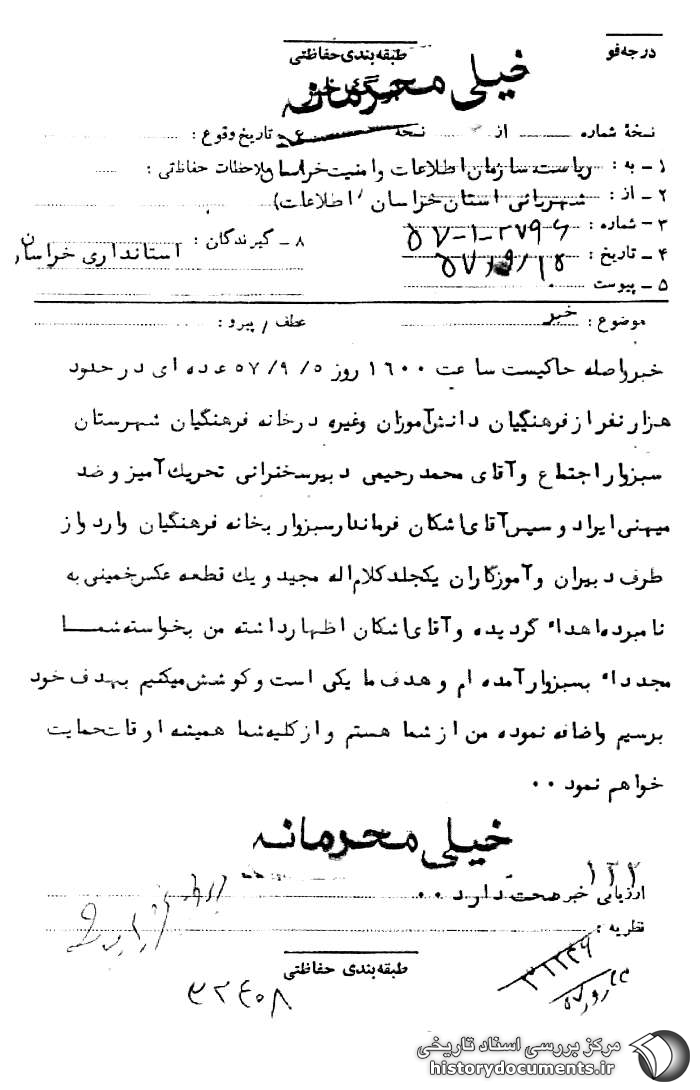 درجه فو
طبقه بندی حفاظتی
خیلی محرمانه
نسخهٔ شماره از نسخه
تاریخ وقوع :
۱ ـ به : ریاست سازمان اطلاعات و امنیت خراسان
ملاحظات حفاظتی :
۲ ـ از : شهربانی استان خراسان (اطلاعات)
۳ ـ شماره : ۲۷۹۶-۱-۵۷
۴ ـ تاریخ : ۵۷/۹/۱۵
۵ ـ پیوست
۸ ـ گیرندگان : استانداری خراسان
موضوع : خبر
عطف / پیرو :
خبر واصله حاکیست ساعت ۱۶۰۰ روز ۵۷/۹/۵ عده ای در حدود
هزار نفر از فرهنگیان دانش‌آموزان وغیره در خانه فرهنگیان شهرستان
سبزوار اجتماع و آقای محمد رحیمی دبیر سخنرانی تحریک آمیز و ضد
میهنی ایراد و سپس آقای اشکان فرماندار سبزوار بخانه فرهنگیان وارد و از
طرف دبیران و آموزگاران یکجلد کلام اله مجید و یک قطعه عکس خمینی به
نامبرده اهداء گردیده و آقای اشکان اظهار داشته من بخواسته شما
مجدداء بسبزوار آمده ام و هدف ما یکی است و کوشش میکنیم بهدف خود
برسیم واضافه نموده من از شما هستم و از کلیه شما همیشه اوقات حمایت
خواهم نمود ۰۰
خیلی محرمانه
ارزیابی خبر صحت دارد ۰۰
نظریه :
طبقه بندی حفاظتی
۳۲۴۰۸
مرکز بررسی اسناد تاریخی
historydocuments.ir